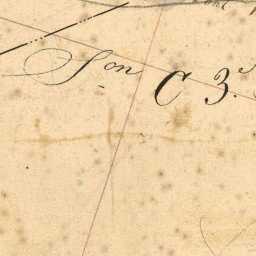 Son C 3.d